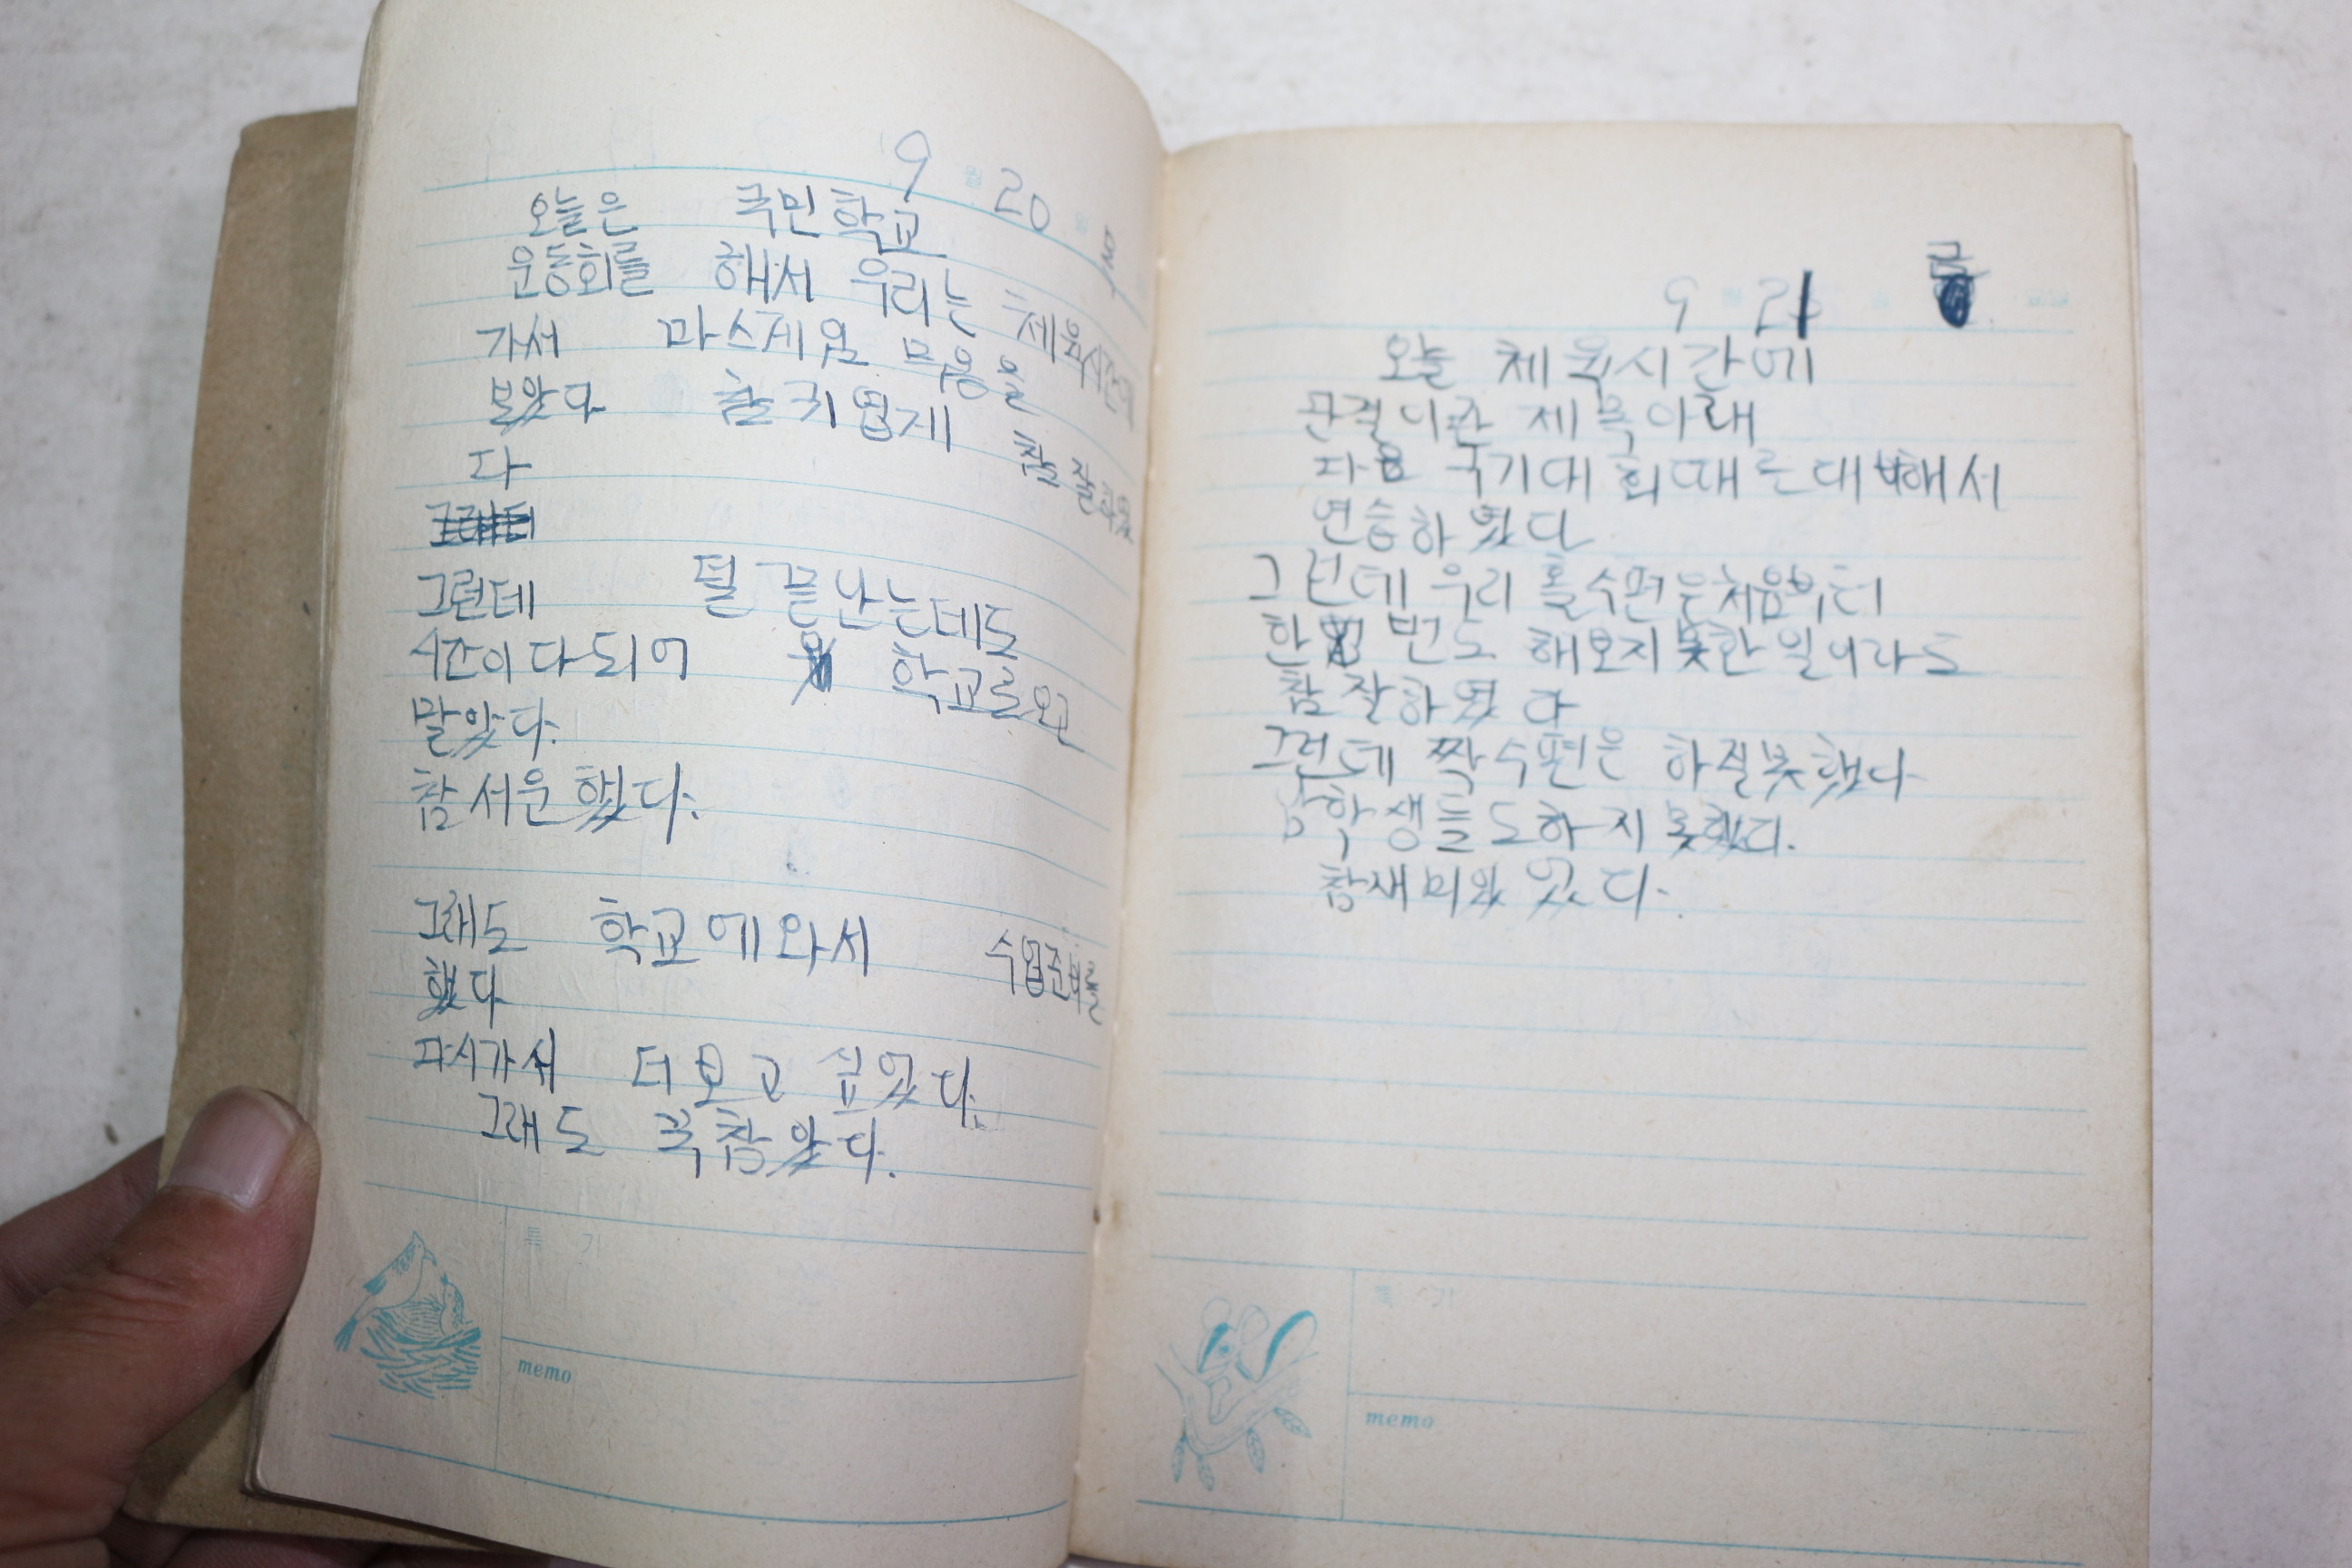 9 월 20 일 목
오늘은 국민학교
운동회를 해서 우리는 체육시간에
가서 마스게임 무용을
보았다 참 귀엽게 참 잘하였
다
그런데 덜 끝난는데도
시간이 다 되어 학교를 오고
말았다.
참 서운했다.
그래도 학교에 와서 수업준비를
했다
다시가서 더 보고 싶었다.
그래도 꾹 참았다.
특 기
memo
9 월 21 일 금
오늘 체육시간에
제목아래
다음 국기대회때를 대비해서
연승하였다
그런데 우리 홀수편은 처음부터
한 번도 해보지 못한 일이라도
참 잘하였다
그런데 짝수편은 하질 못했다
남학생들도 하지 못했다.
참 새미있었다.
특 기
memo